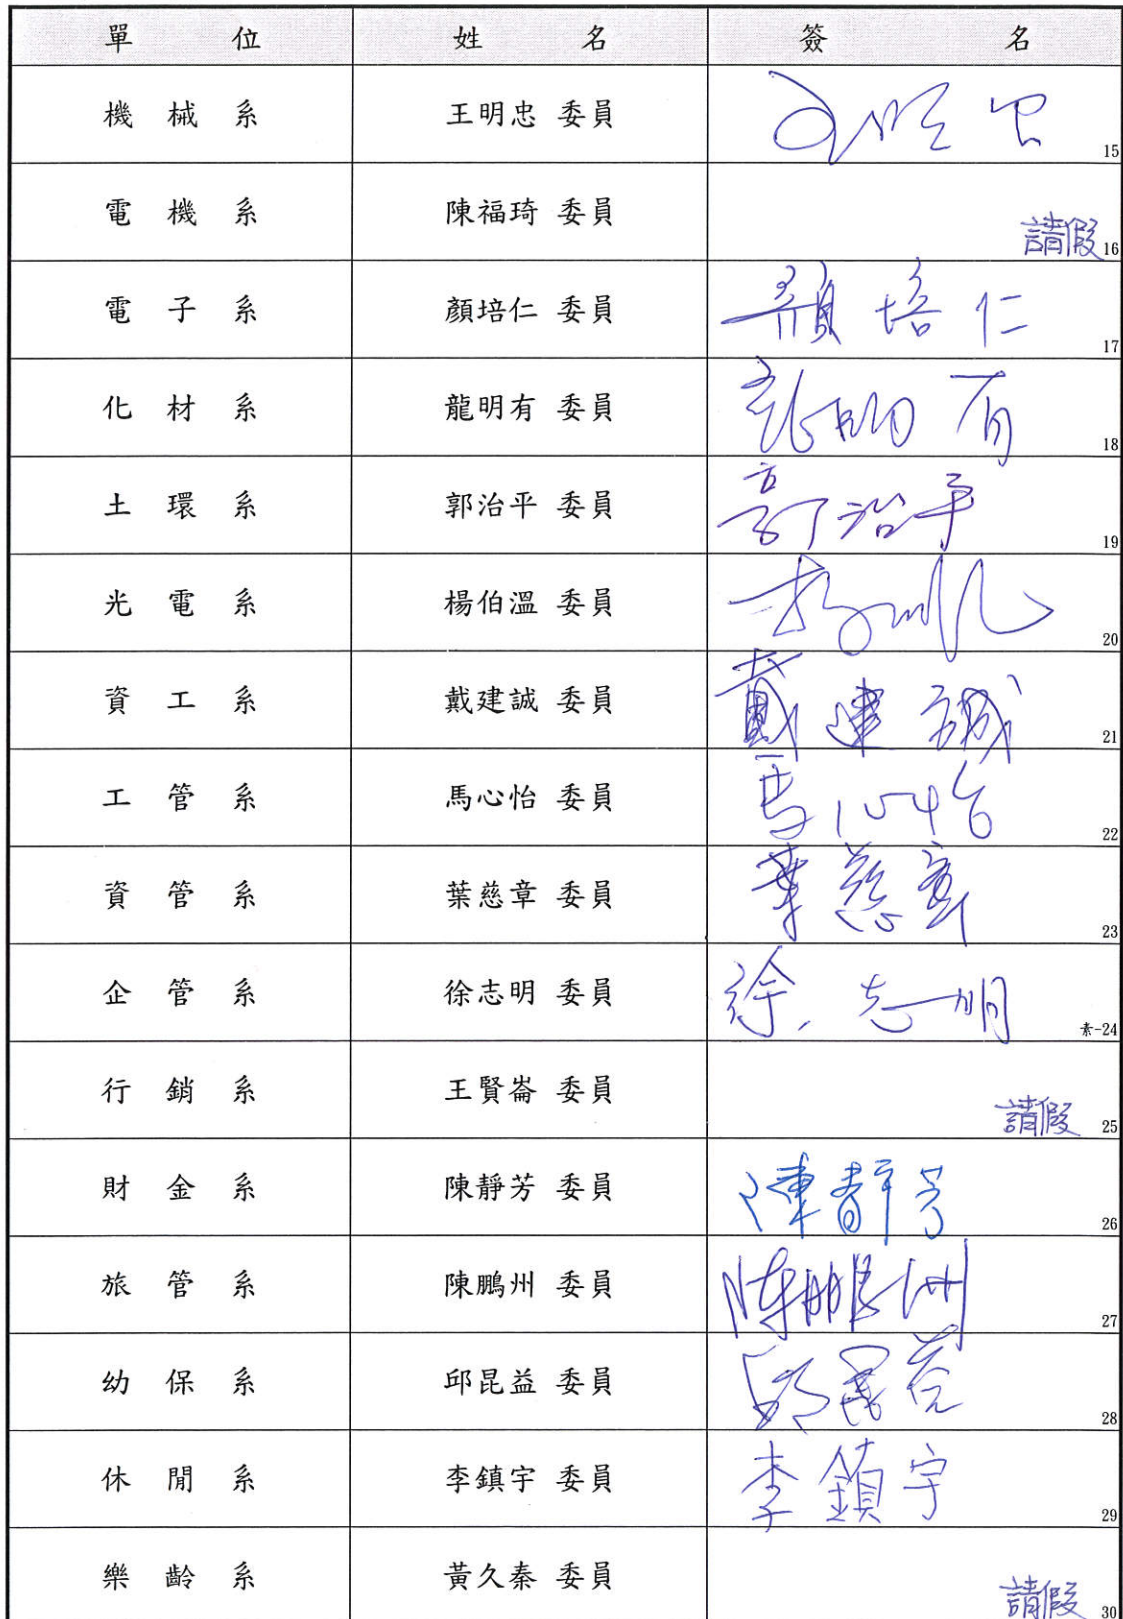 單位 姓名 簽名
機械系 王明忠 委員 王明忠 15
電機系 陳福琦 委員 請假 16
電子系 顏培仁 委員 顏培仁 17
化材系 龍明有 委員 龍明有 18
土環系 郭治平 委員 郭治平 19
光電系 楊伯溫 委員 20
資工系 戴建誠 委員 戴建誠 21
工管系 馬心怡 委員 馬心怡 22
資管系 葉慈章 委員 葉慈章 23
企管系 徐志明 委員 徐志明 素-24
行銷系 王賢崙 委員 請假 25
財金系 陳靜芳 委員 陳靜芳 26
旅管系 陳鵬州 委員 陳鵬州 27
幼保系 邱昆益 委員 邱昆益 28
休閒系 李鎮宇 委員 李鎮宇 29
樂齡系 黃久秦 委員 請假 30